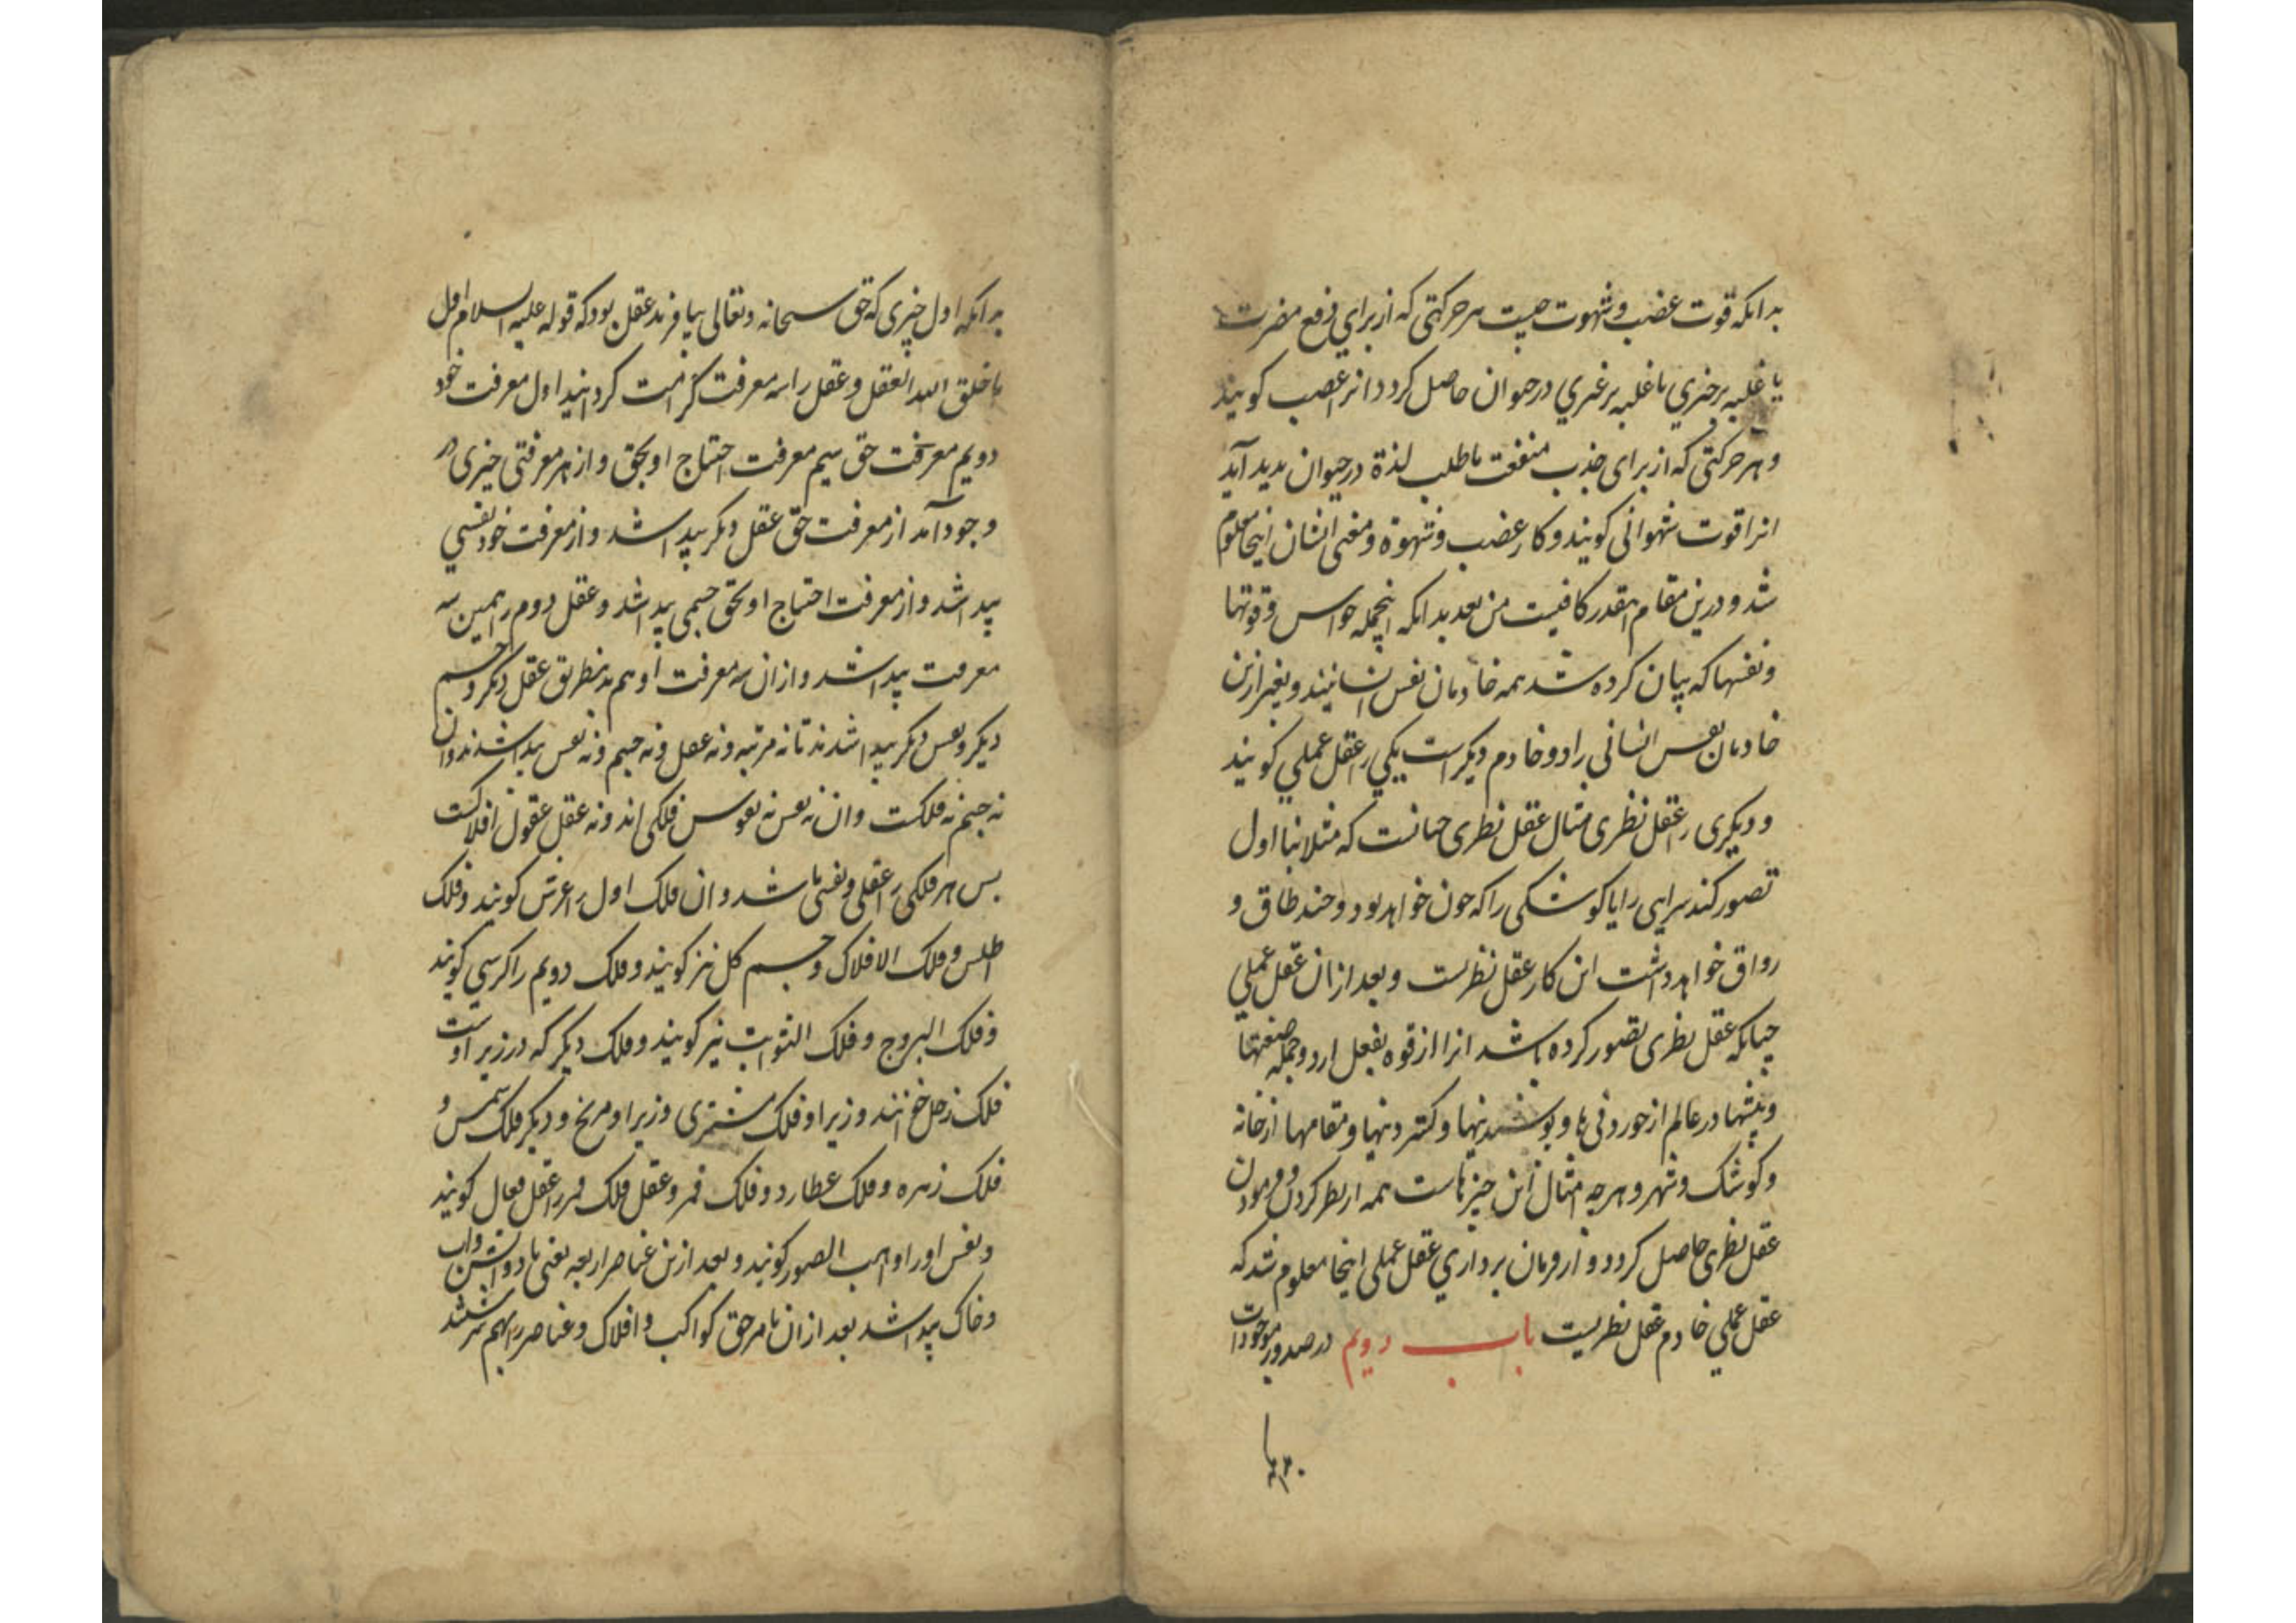 بدانکه قوت غضب و شهوت چیست هر حرکتی که از برای دفع مضرت
یا غلبه بر چیزی یا غلبه بر غیری در حیوان حاصل کردد انرا غصب کویند
و هر حرکتی که از برای جذب منفعت یا طلب لذة در حیوان پدید آید
انرا قوت شهوانی کویند و کار غضب و شهوة و معنی ایشان اینجا معلوم
شد و درین مقام اینقدر کافیست من بعد بدانکه اینجمله حواس و قوتها
و نفسها که بیان کرده شد همه خادمان نفس انسانیند و بغیر ازین
خادمان نفس انسانی را دو خادم دیکر است یکی را عقل عملی کویند
و دیکری را عقل نظری مثال عقل نظری چنانست که مثلا بنا اول
تصور کند سرایی را یا کوشکی را که چون خواهد بود و چند طاق و
رواق خواهد داشت این کار عقل نظریست و بعد از ان عقل عملی
چنانکه عقل نظری تصور کرده باشد انرا از قوه بفعل ارد و جمله صنعتها
و پیشها در عالم از خوردنی ها و پوشیدنیها و کستردنیها و مقامها از خانه
و کوشک و شهر و هرچه امثال این چیزهاست همه از نظر کردن و فرمودن
عقل نظری حاصل کردد و از فرمان برداری عقل عملی اینجا معلوم شد که
عقل عملی خادم عقل نظریست باب دویم در صدور موجودات
بدانکه
بدانکه اول چیزی که حق سبحانه و تعالی بیافرید عقل بود که قوله علیه السلام اول
ما خلق الله العقل و عقل را سه معرفت کرامت کردانید اول معرفت خود
دویم معرفت حق سیم معرفت احتیاج او بحق و از هر معرفتی چیزی در
وجود آمد از معرفت حق عقل دیکر پیدا شد و از معرفت خود نفسی
پیدا شد و از معرفت احتیاج او بحق جسمی پیدا شد و عقل دوم را همین سه
معرفت پیدا شد و از ان سه معرفت او هم بدینطریق عقل دیکر و جسم
دیکر و نفس دیکر پیدا شدند تا نه مرتبه و نه عقل و نه جسم و نه نفس پیدا شدند و ان
نه جسم نه فلکست و ان نه نفس نه نفوس فلکی اند و نه عقل عقول افلاکست
پس هر فلکی را عقلی و نفسی باشد و ان فلک اول را عرش کویند و فلک
اطلس و فلک الافلاک و جسم کل نیز کویند و فلک دویم را کرسی کویند
و فلک البروج و فلک الثوابت نیز کویند و فلک دیکر که در زیر اوست
فلک زحل خوانند و زیر او فلک مشتری و زیر او مریخ و دیکر فلک شمس و
فلک زهره و فلک عطارد و فلک قمر و عقل فلک قمر را عقل فعال کویند
و نفس او را واهب الصور کویند و بعد ازین عناصر اربعه یعنی باد و آتش و اب
و خاک پیدا شد بعد از ان بامر حق کواکب و افلاک و عناصر را بهم سرشتند